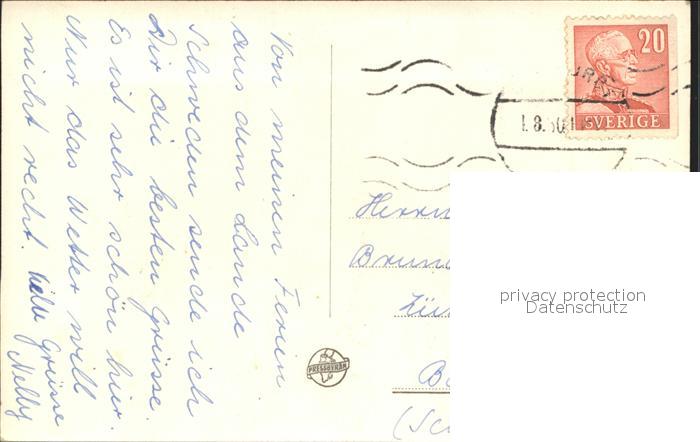 Von meinen Ferien
aus dem Lande
Schweden sende ich
Dir die besten Grüsse.
Es ist sehr schön hier.
Nur das Wetter will
nicht recht. Liebe Grüsse
Nelly
20
SVERIGE
1.8.50
Herrn
PRESSBYRÅN
privacy protection
Datenschutz